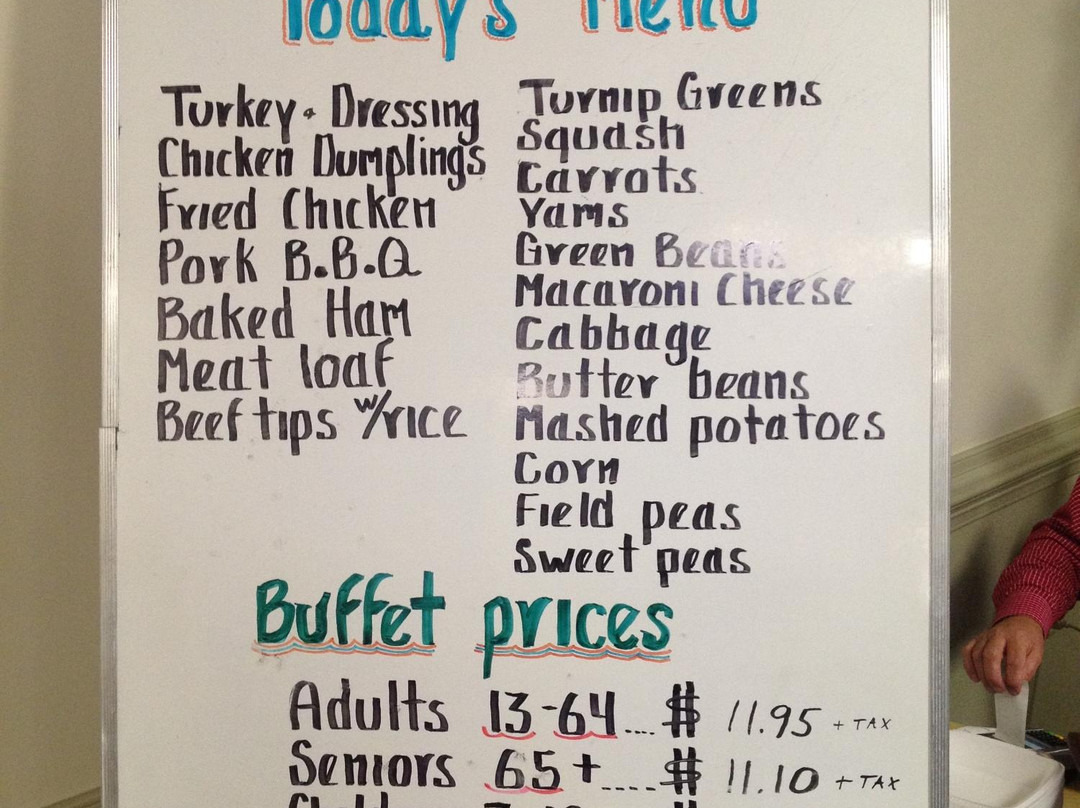 Today's Menu
Turkey & Dressing
Chicken Dumplings
Fried Chicken
Pork B.B.Q
Baked Ham
Meat loaf
Beef tips w/rice
Turnip Greens
Squash
Carrots
Yams
Green Beans
Macaroni Cheese
Cabbage
Butter beans
Mashed potatoes
Corn
Field peas
Sweet peas
Buffet prices
Adults 13-64....$ 11.95 + TAX
Seniors 65+....$ 11.10 + TAX